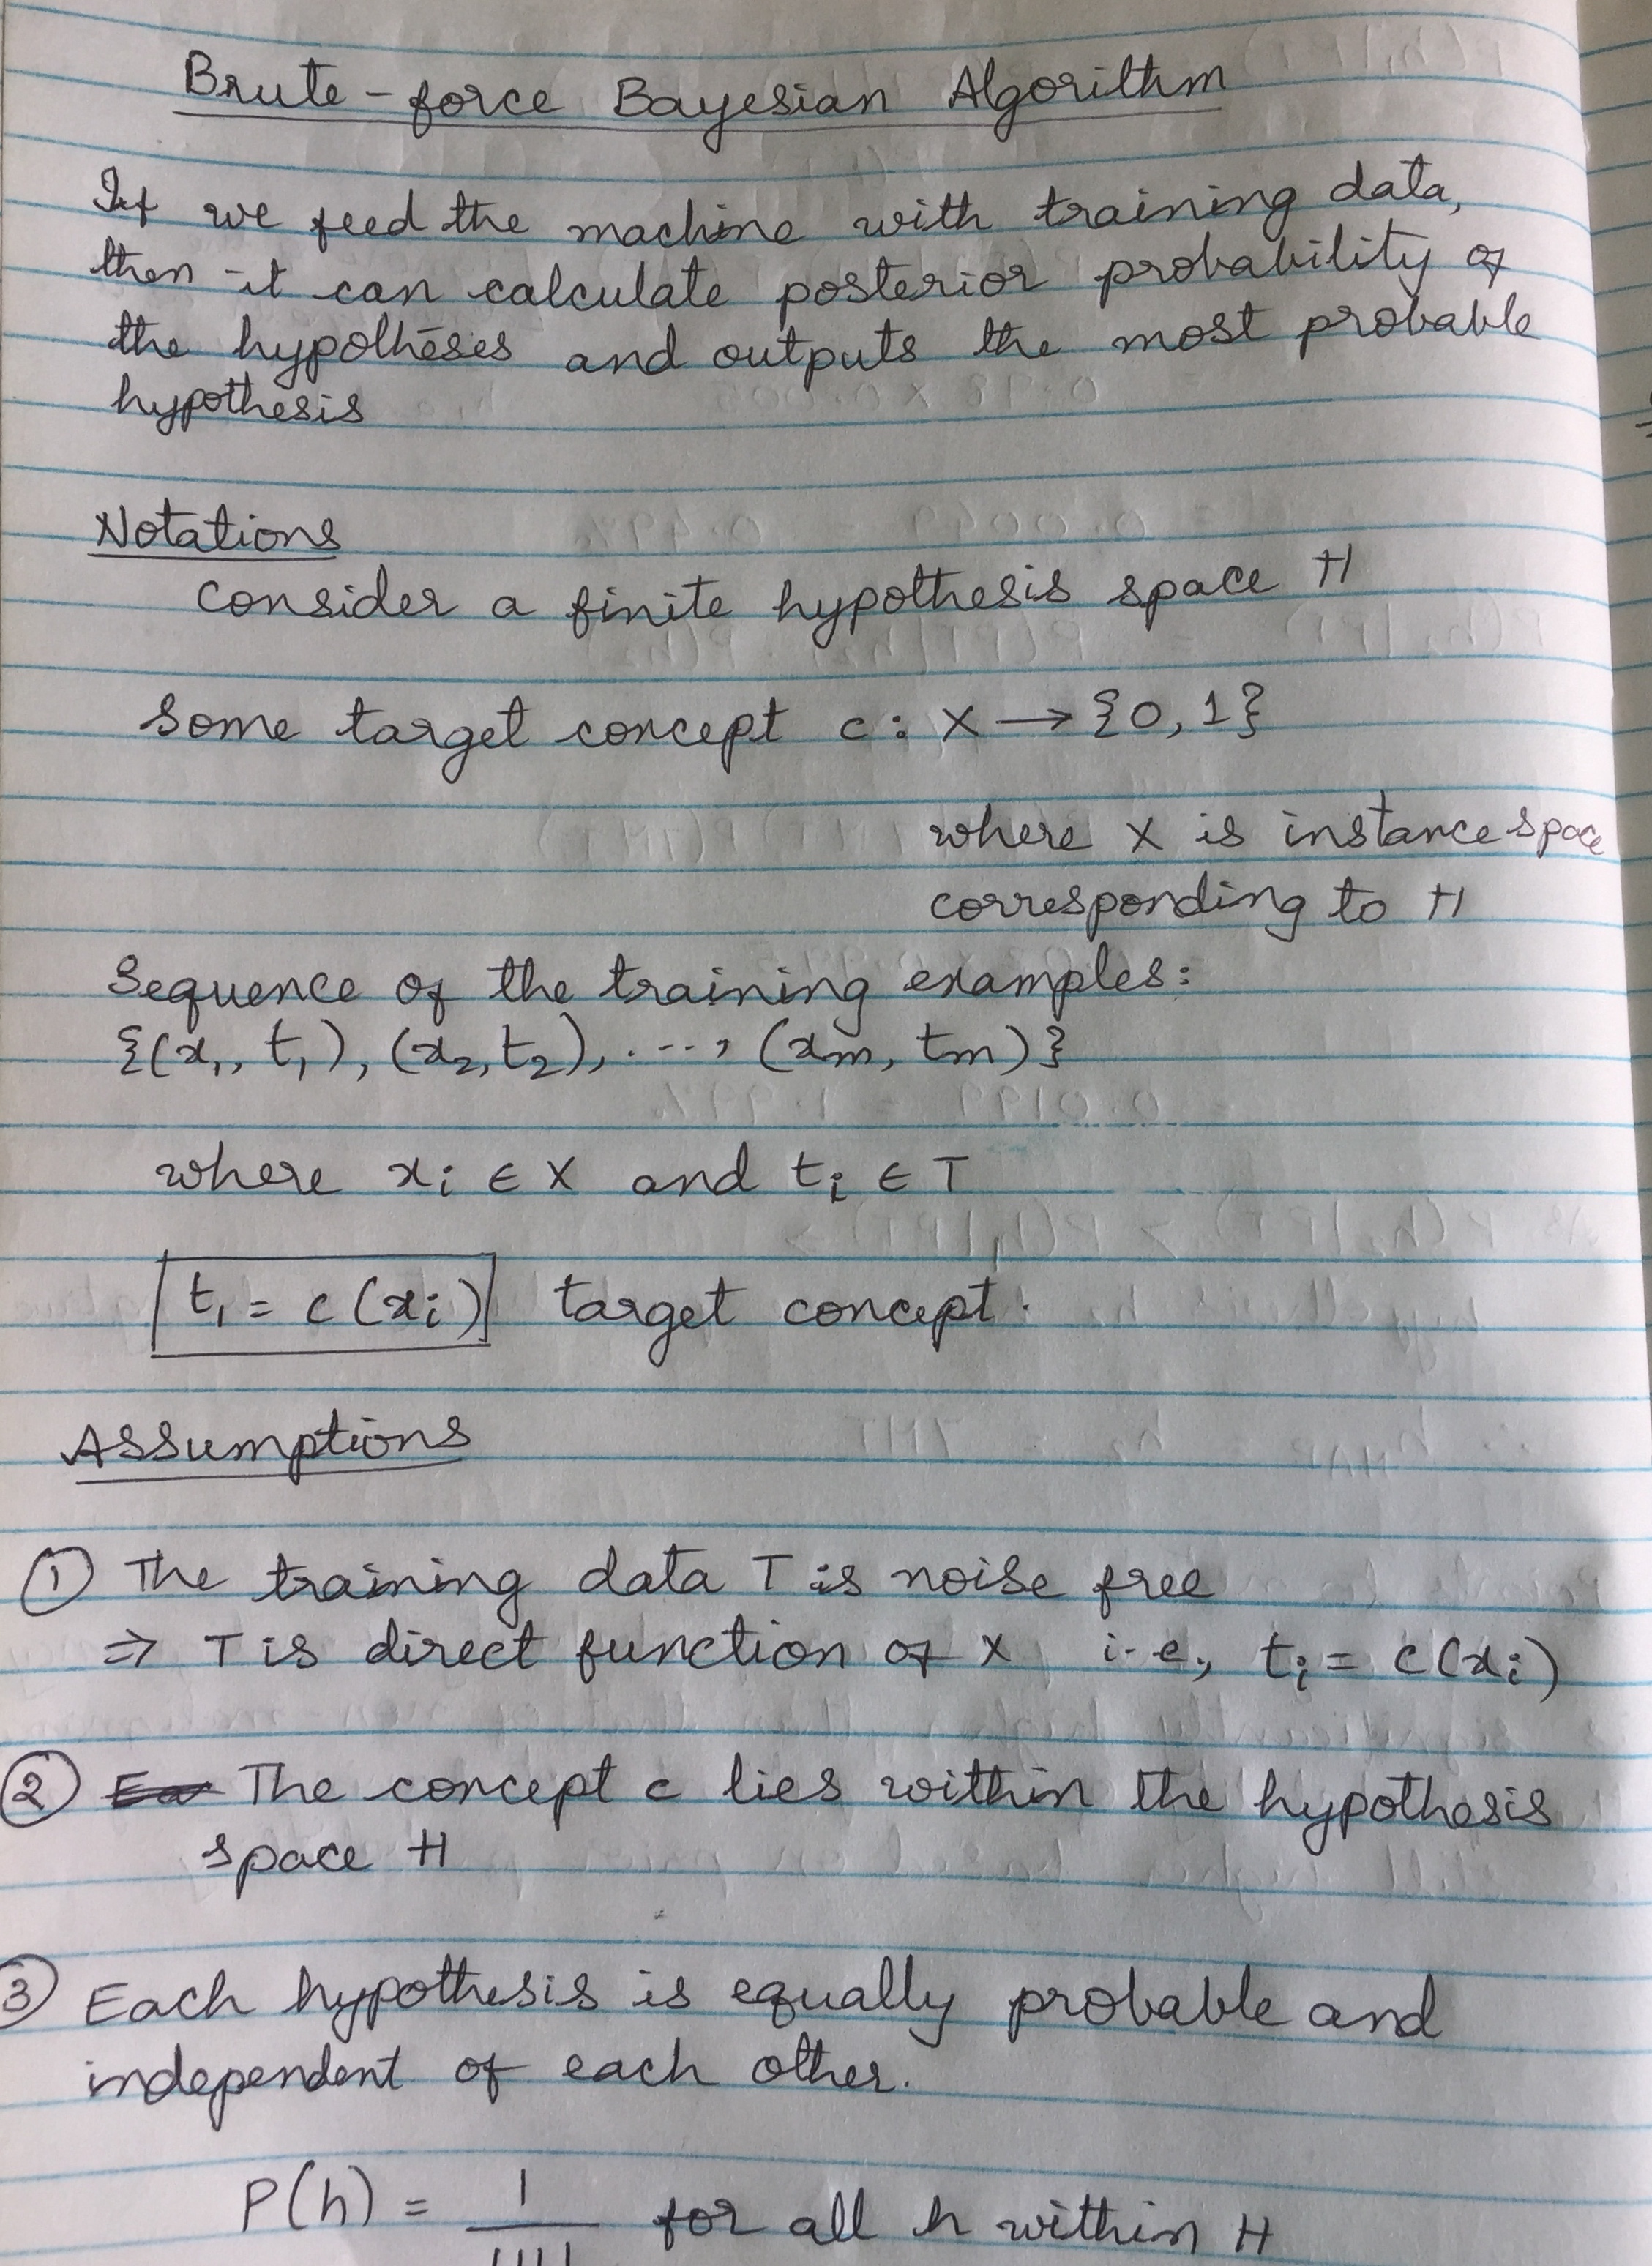 Brute-force Bayesian Algorithm
If we feed the machine with training data,
then it can calculate posterior probability of
the hypotheses and outputs the most probable
hypothesis
Notations
Consider a finite hypothesis space H
Some target concept c: X → {0,1}
where X is instance space
corresponding to H
Sequence of the training examples:
{(x₁, t₁), (x₂, t₂), ..., (xm, tm)}
where xi ∈ X and ti ∈ T
t₁ = c(xi) target concept.
Assumptions
① The training data T is noise free
⇒ T is direct function of X i.e., ti = c(xi)
② The concept c lies within the hypothesis
space H
③ Each hypothesis is equally probable and
independent of each other.
P(h) = 1/|H| for all h within H